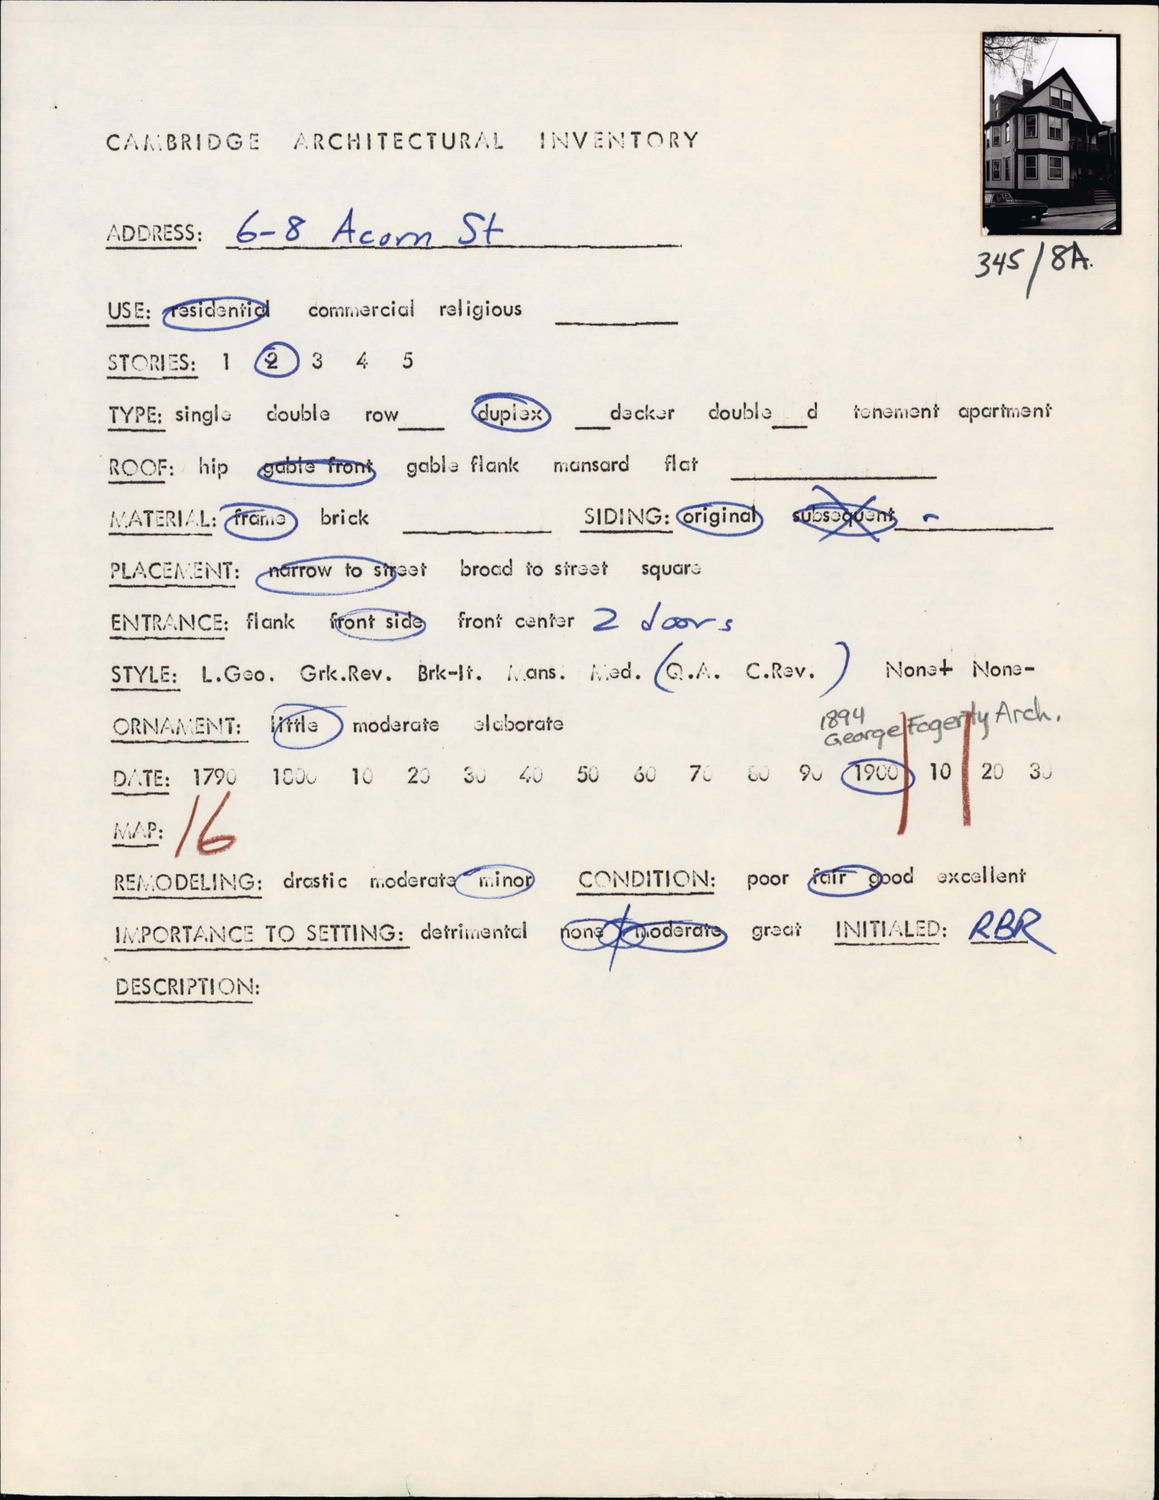 CAMBRIDGE ARCHITECTURAL INVENTORY
ADDRESS: 6-8 Acorn St
345/8A.
USE: residential commercial religious
STORIES: 1 2 3 4 5
TYPE: single double row___ duplex ___decker double___d tenement apartment
ROOF: hip gable front gable flank mansard flat
MATERIAL: frame brick SIDING: original subsequent -
PLACEMENT: narrow to street broad to street square
ENTRANCE: flank front side front center 2 doors
STYLE: L.Geo. Grk.Rev. Brk-It. Mans. Med. (Q.A. C.Rev.) None+ None-
ORNAMENT: little moderate elaborate
1894
George Fogerty Arch.
DATE: 1790 1800 10 20 30 40 50 60 70 80 90 1900 10 20 30
MAP: 16
REMODELING: drastic moderate minor CONDITION: poor fair good excellent
IMPORTANCE TO SETTING: detrimental none moderate great INITIALED: RBR
DESCRIPTION: